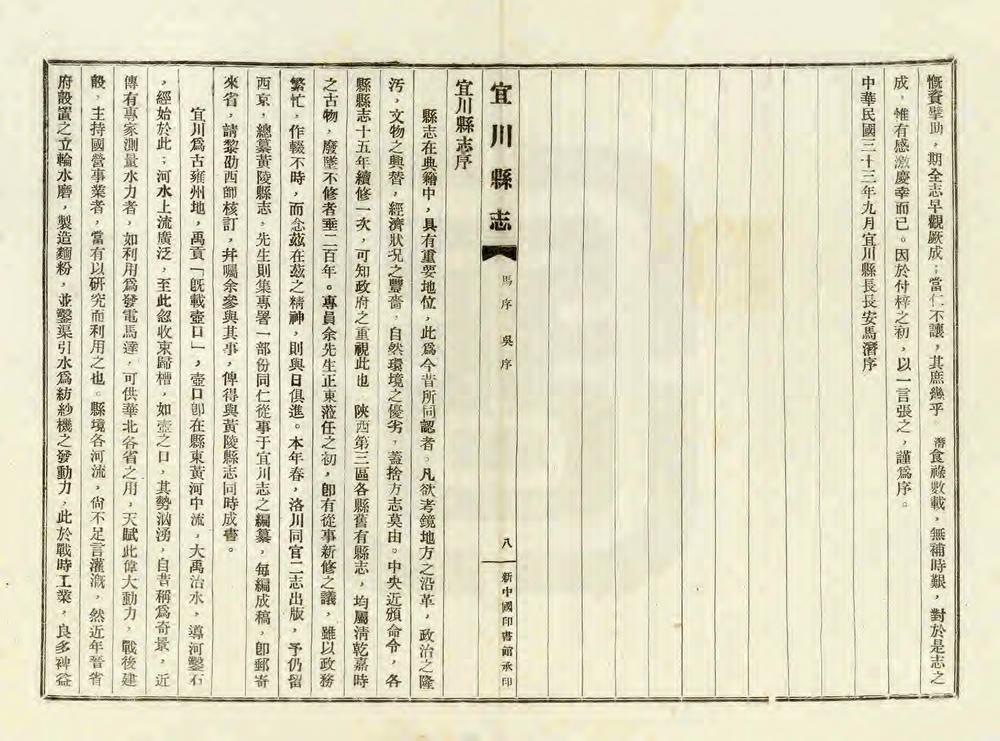 慨資擘助，期全志早觀厥成；當仁不讓，其庶幾乎　濳食祿數載，無補時艱，對於是志之
成，惟有感激慶幸而已。因於付梓之初，以一言張之，謹爲序。
中華民國三十三年九月宜川縣長長安馬濳序
宜川縣志
馬序　吳序
八
新中國印書館承印
宜川縣志序
縣志在典籍中，具有重要地位，此爲今昔所同認者。凡欲考鏡地方之沿革，政治之隆
汚，文物之興替，經濟狀况之豐嗇，自然環境之優劣，蓋捨方志莫由。中央近頒命令，各
縣縣志十五年續修一次，可知政府之重視此也　陜西第三區各縣舊有縣志，均屬淸乾嘉時
之古物，廢墜不修者垂二百年。專員余先生正東蒞任之初，卽有從事新修之議，雖以政務
繁忙，作輟不時，而念茲在茲之精神，則與日俱進。本年春，洛川同官二志出版，予仍留
西京，總纂黃陵縣志，先生則集專署一部份同仁從事于宜川志之編纂，每編成稿，卽郵寄
來省，請黎劭西師核訂，幷囑余參與其事，俾得與黃陵縣志同時成書。
宜川爲古雍州地，禹貢「旣載壺口」，壺口卽在縣東黃河中流，大禹治水，導河鑿石
，經始於此；河水上流廣泛，至此忽收束歸槽，如壺之口，其勢洶湧，自昔稱爲奇景，近
傳有專家測量水力者，如利用爲發電馬達，可供華北各省之用，天賦此偉大動力，戰後建
設，主持國營事業者，當有以硏究而利用之也。縣境各河流，尙不足言灌漑，然近年晉省
府設置之立輪水磨，製造麵粉，並鑿渠引水爲紡紗機之發動力，此於戰時工業，良多裨益